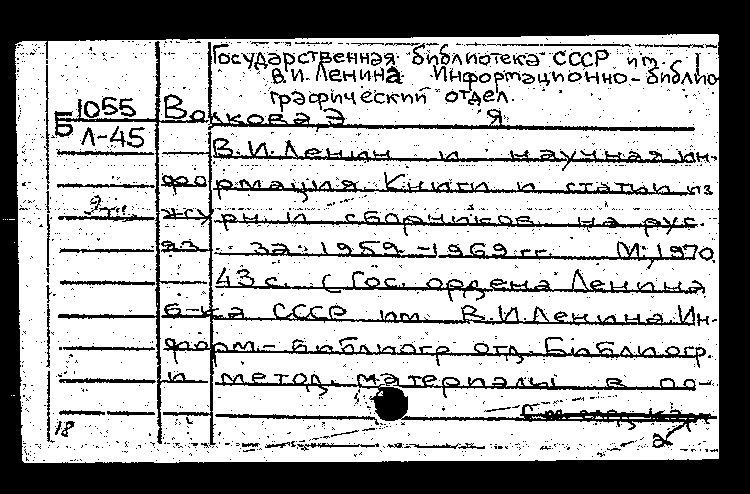 Государственная библиотека СССР им.
В.И. Ленина. Информационно-библио-
графический отдел.
Б 1055
Л-45
Волкова, Э Я
В.И. Ленин и научная ин-
формация Книги и статьи из
журн. и сборников на рус.
яз. за 1959-1969 гг. М., 1970
43 с. (Гос. ордена Ленина
б-ка СССР им. В.И. Ленина. Ин-
форм.-библиогр отд. Библиогр.
и метод. материалы в по-
См след карт
2
18